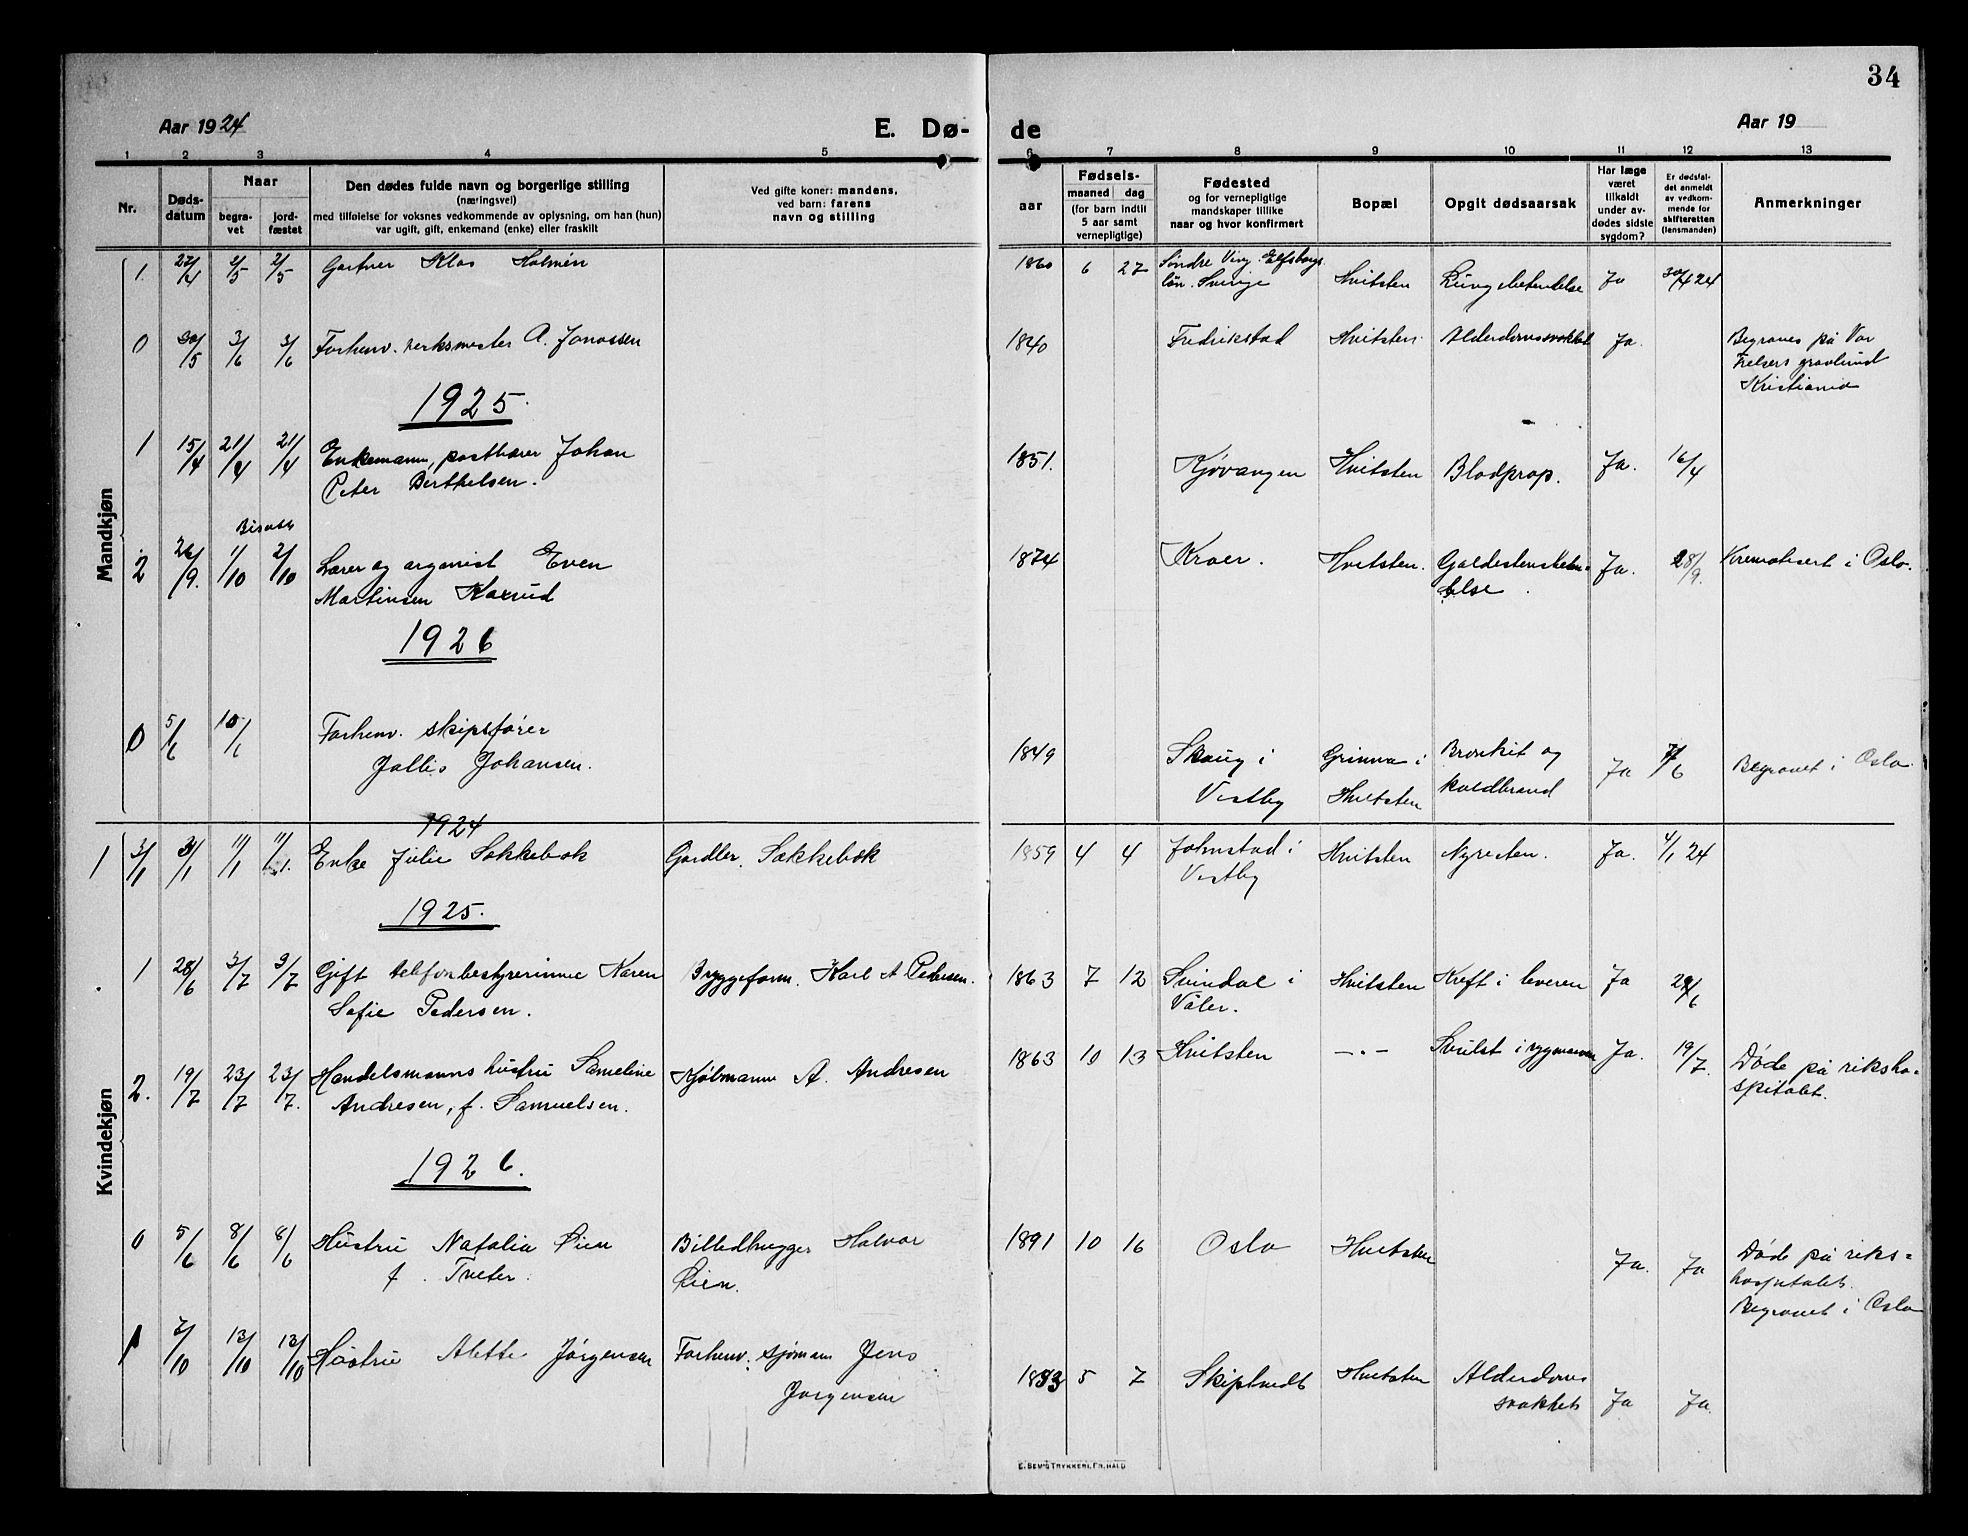 34
Aar 1924
E. Dø-
de
Aar 19
1 2 3 4 5 6 7 8 9 10 11 12 13
Nr.
Døds-
datum
Naar
begra-
vet
jord-
fæstet
Den dødes fulde navn og borgerlige stilling
(næringsvei)
med tilføielse for voksnes vedkommende av oplysning, om han (hun)
var ugift, gift, enkemand (enke) eller fraskilt
Ved gifte koner: mandens,
ved barn: farens
navn og stilling
aar
Fødsels-
maaned dag
(for barn indtil
5 aar samt
vernepligtige)
Fødested
og for vernepligtige
mandskaper tillike
naar og hvor konfirmert
Bopæl
Opgit dødsaarsak
Har læge
været
tilkaldt
under av-
dødes sidste
sygdom?
Er dødsfal-
det anmeldt
av vedkom-
mende for
skifteretten
(lensmanden)
Anmerkninger
Mandkjøn
1. 27/4 2/5 2/5 Gartner Klas Holmén 1860 6 27 Søndre Ving. Elfsborgs
län. Sverige Hvitsten Lungebetendelse Ja 30/4 24
0 30/5 3/6 3/6 Forhenv. verksmester A. Jonassen 1840 Fredrikstad Hvitsten Alderdomssvakhet Ja. Begraves på Vor
Frelsers gravlund
Kristiania
1925.
1 15/4 21/4 21/4 Enkemann, postbærer Johan
Peter Berthelsen. 1851. Kjøvangen Hvitsten Blodprop. Ja. 16/4
Bisatt
2 26/9. 1/10 2/10 Lærer og organist Even
Martinsen Kaxrud 1874 Kroer. Hvitsten. Galdestensbeten-
delse. Ja. 28/9. Kremotisert i Oslo.
1926
0 5/6 10/6 Forhenv. skipsfører
Jallis Johansen. 1849 Skaug i
Vestby Grimna i
Hvitsten Bronkit og
koldbrand Ja 7/6 Begravet i Oslo.
Kvindekjøn
1924
1 3/1 3/1 11/1 11/1. Enke Julie Sokkebæk Gardler. Sokkebæk 1859 4 4 Johnstad i
Vestby Hvitsten Nyresten. Ja. 4/1 24
1925.
1 28/6 3/7 3/7 Gift telefonbestyrerinne Karen
Sofie Pedersen. Bryggeform. Karl A Pedersen. 1863 7 12 Svindal i
Våler. Hvitsten Kreft i leveren Ja 29/6
2. 19/7 23/7 23/7. Handelsmanns hustru Sameline
Andresen, f. Samuelsen. Kjøbmann A. Andresen 1863 10 13 Hvitsten —.— Svulst i rygmarven Ja. 19/7. Døde på riksho-
spitalet.
1926.
0 5/6 8/6 8/6 Hustru Natalia Øien
f. Tveter. Billedhugger Halvor
Øien. 1891 10 16 Oslo Hvitsten Ja. Ja Døde på riks=
hospitalet.
Begravet i Oslo
1 7/10 13/10 13/10 Hustru Alette Jørgensen Forhenv. sjømann Jens
Jørgensen 1853 5 7 Skiptvedt Hvitsten Alderdoms
svakhet Ja Ja.
E. SEM'S TRYKKERI, FR.HALD